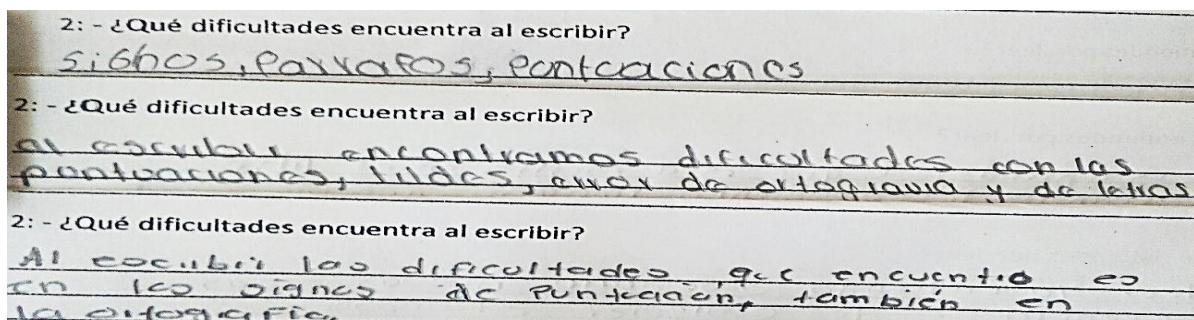 2: - ¿Qué dificultades encuentra al escribir?
Signos, Parrafos, Pontcaciones
2: - ¿Qué dificultades encuentra al escribir?
al escribir encontramos dificoltades con las
pontuaciones, tildes, error de ortogravia y de letras
2: - ¿Qué dificultades encuentra al escribir?
Al escribir las dificultades que encuentro es
en los signos de Puntuación, también en
la ortografía.